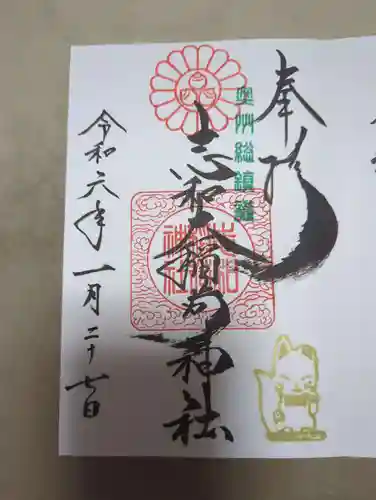 奉拝
奥州総鎮護
志和稲荷神社
志和稲荷神社
令和六年一月二十七日